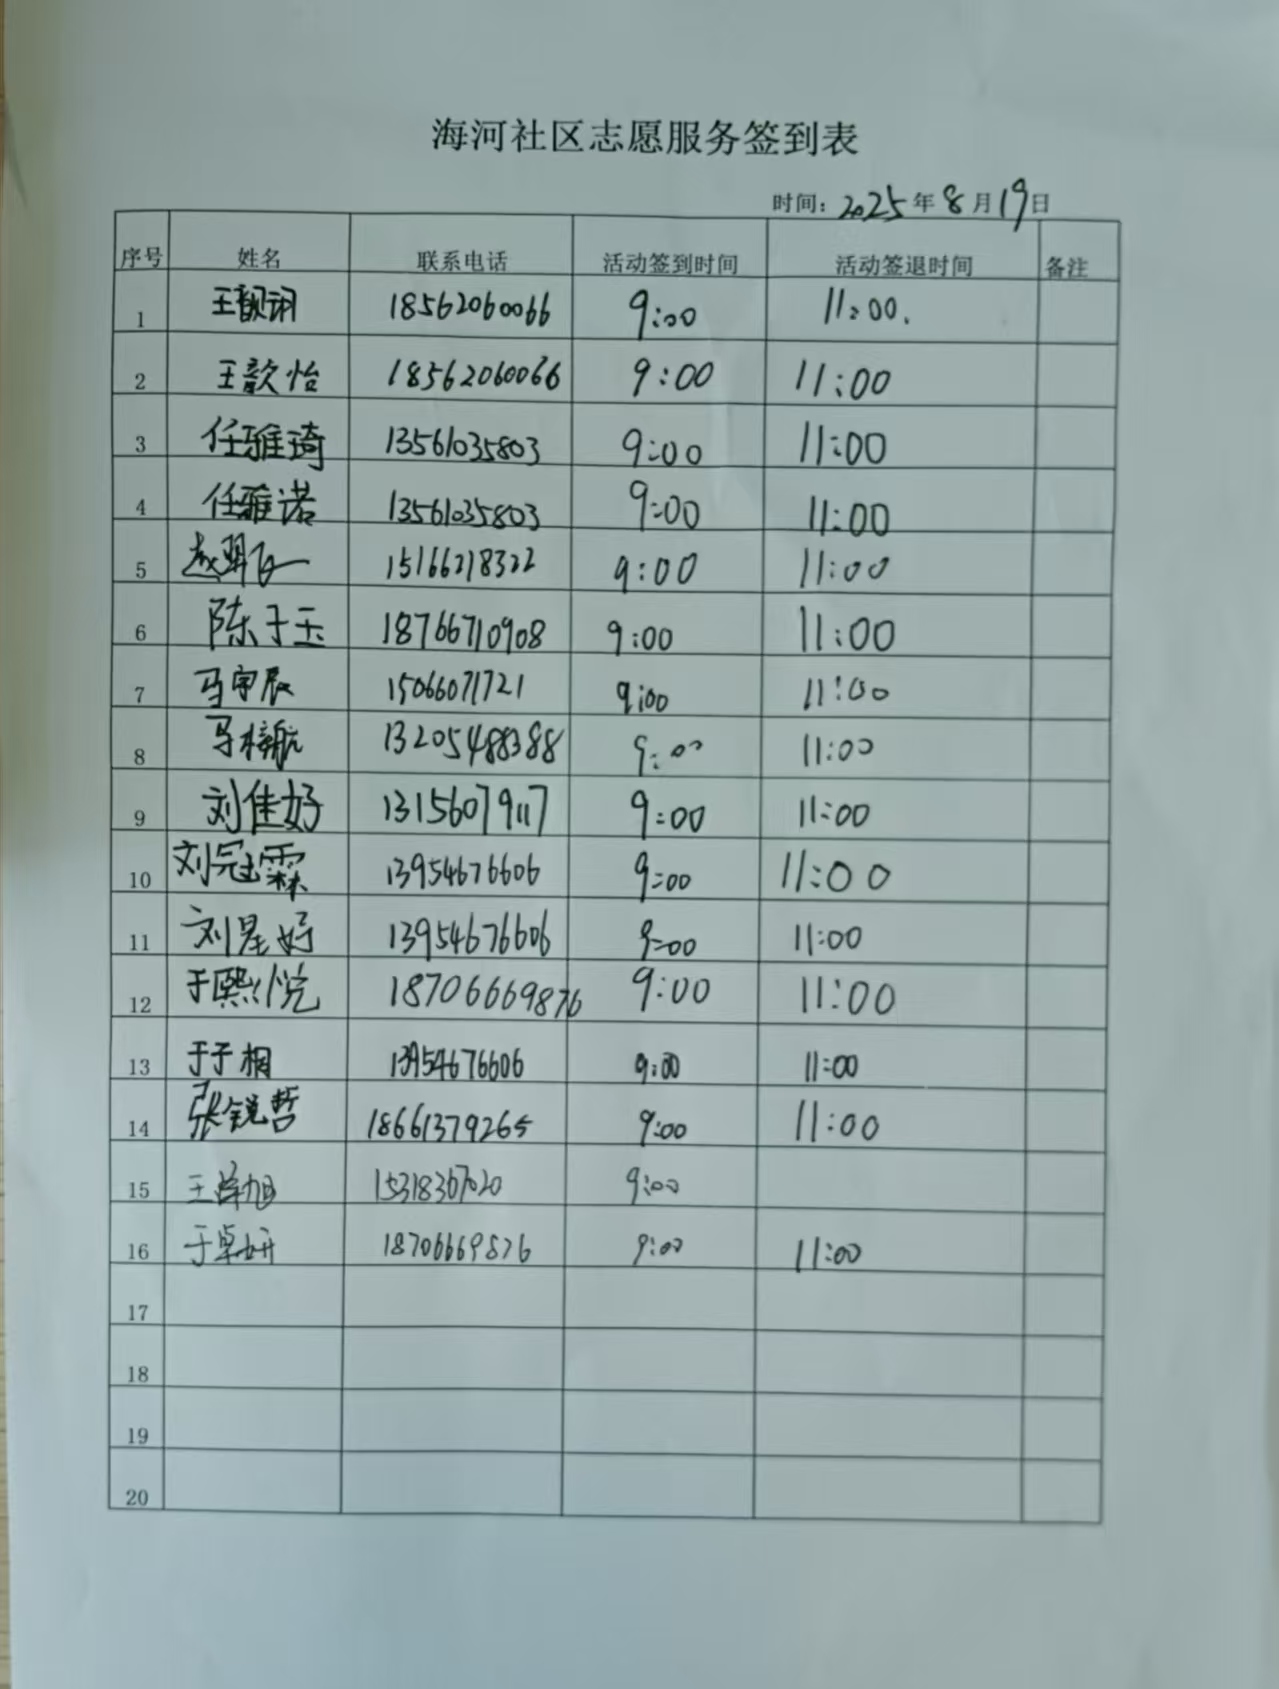 海河社区志愿服务签到表
时间：2025年8月19日
序号 姓名 联系电话 活动签到时间 活动签退时间 备注
1 王靓玥 18562060066 9:00 11:00.
2 王歆怡 18562060066 9:00 11:00
3 任雅琦 13561035803 9:00 11:00
4 任雅诺 13561035803 9:00 11:00
5 赵 15166218322 9:00 11:00
6 陈于玉 18766710908 9:00 11:00
7 马宇辰 15066071721 9:00 11:00
8 马梓航 13205488388 9:00 11:00
9 刘佳好 13156079117 9:00 11:00
10 刘冠霖 13954676606 9:00 11:00
11 刘星好 13954676606 9:00 11:00
12 于熙悦 18706669876 9:00 11:00
13 于子桐 13954676606 9:00 11:00
14 张锐哲 18661379265 9:00 11:00
15 王 旭 15318367020 9:00
16 于卓妍 18706669876 9:00 11:00
17
18
19
20